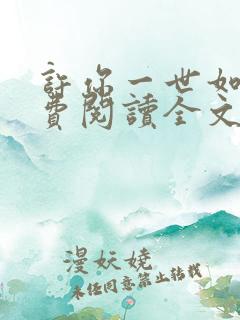 許你一世如
費閱讀全文
漫妖嬈
未經同意禁止轉載